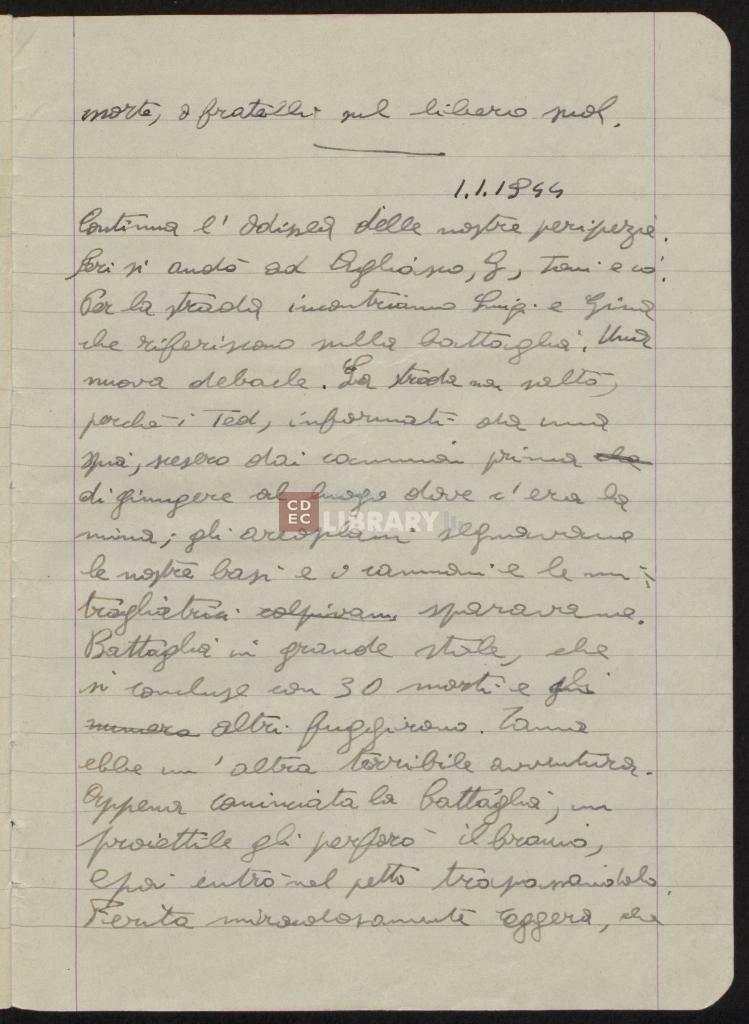 morte, o fratelli sul libero suol.
1.1.1944
Continua l' odissea delle nostre peripezie.
Ieri si andò ad Agliasco, G, Toni e io.
Per la strada incontriamo Luigi e Gina
che riferiscono sulla battaglia. Una
nuova debacle. La strada non saltò,
perchè i Ted, informati da una
spia, scesero dai camion prima che
di giungere al luogo dove c'era la
mina; gli areoplani segnavano
le nostre basi e i cannoni e le mi-
tragliatrici colpivano sparavano.
Battaglia in grande stile, che
si concluse con 30 morti e gli
numero altri fuggirono.
ebbe un' altra terribile avventura.
Appena cominciata la battaglia, un
proiettile gli perforò il braccio,
e poi entrò nel petto trapassandolo.
Ferita miracolosamente leggera, che
CDEC LIBRARY